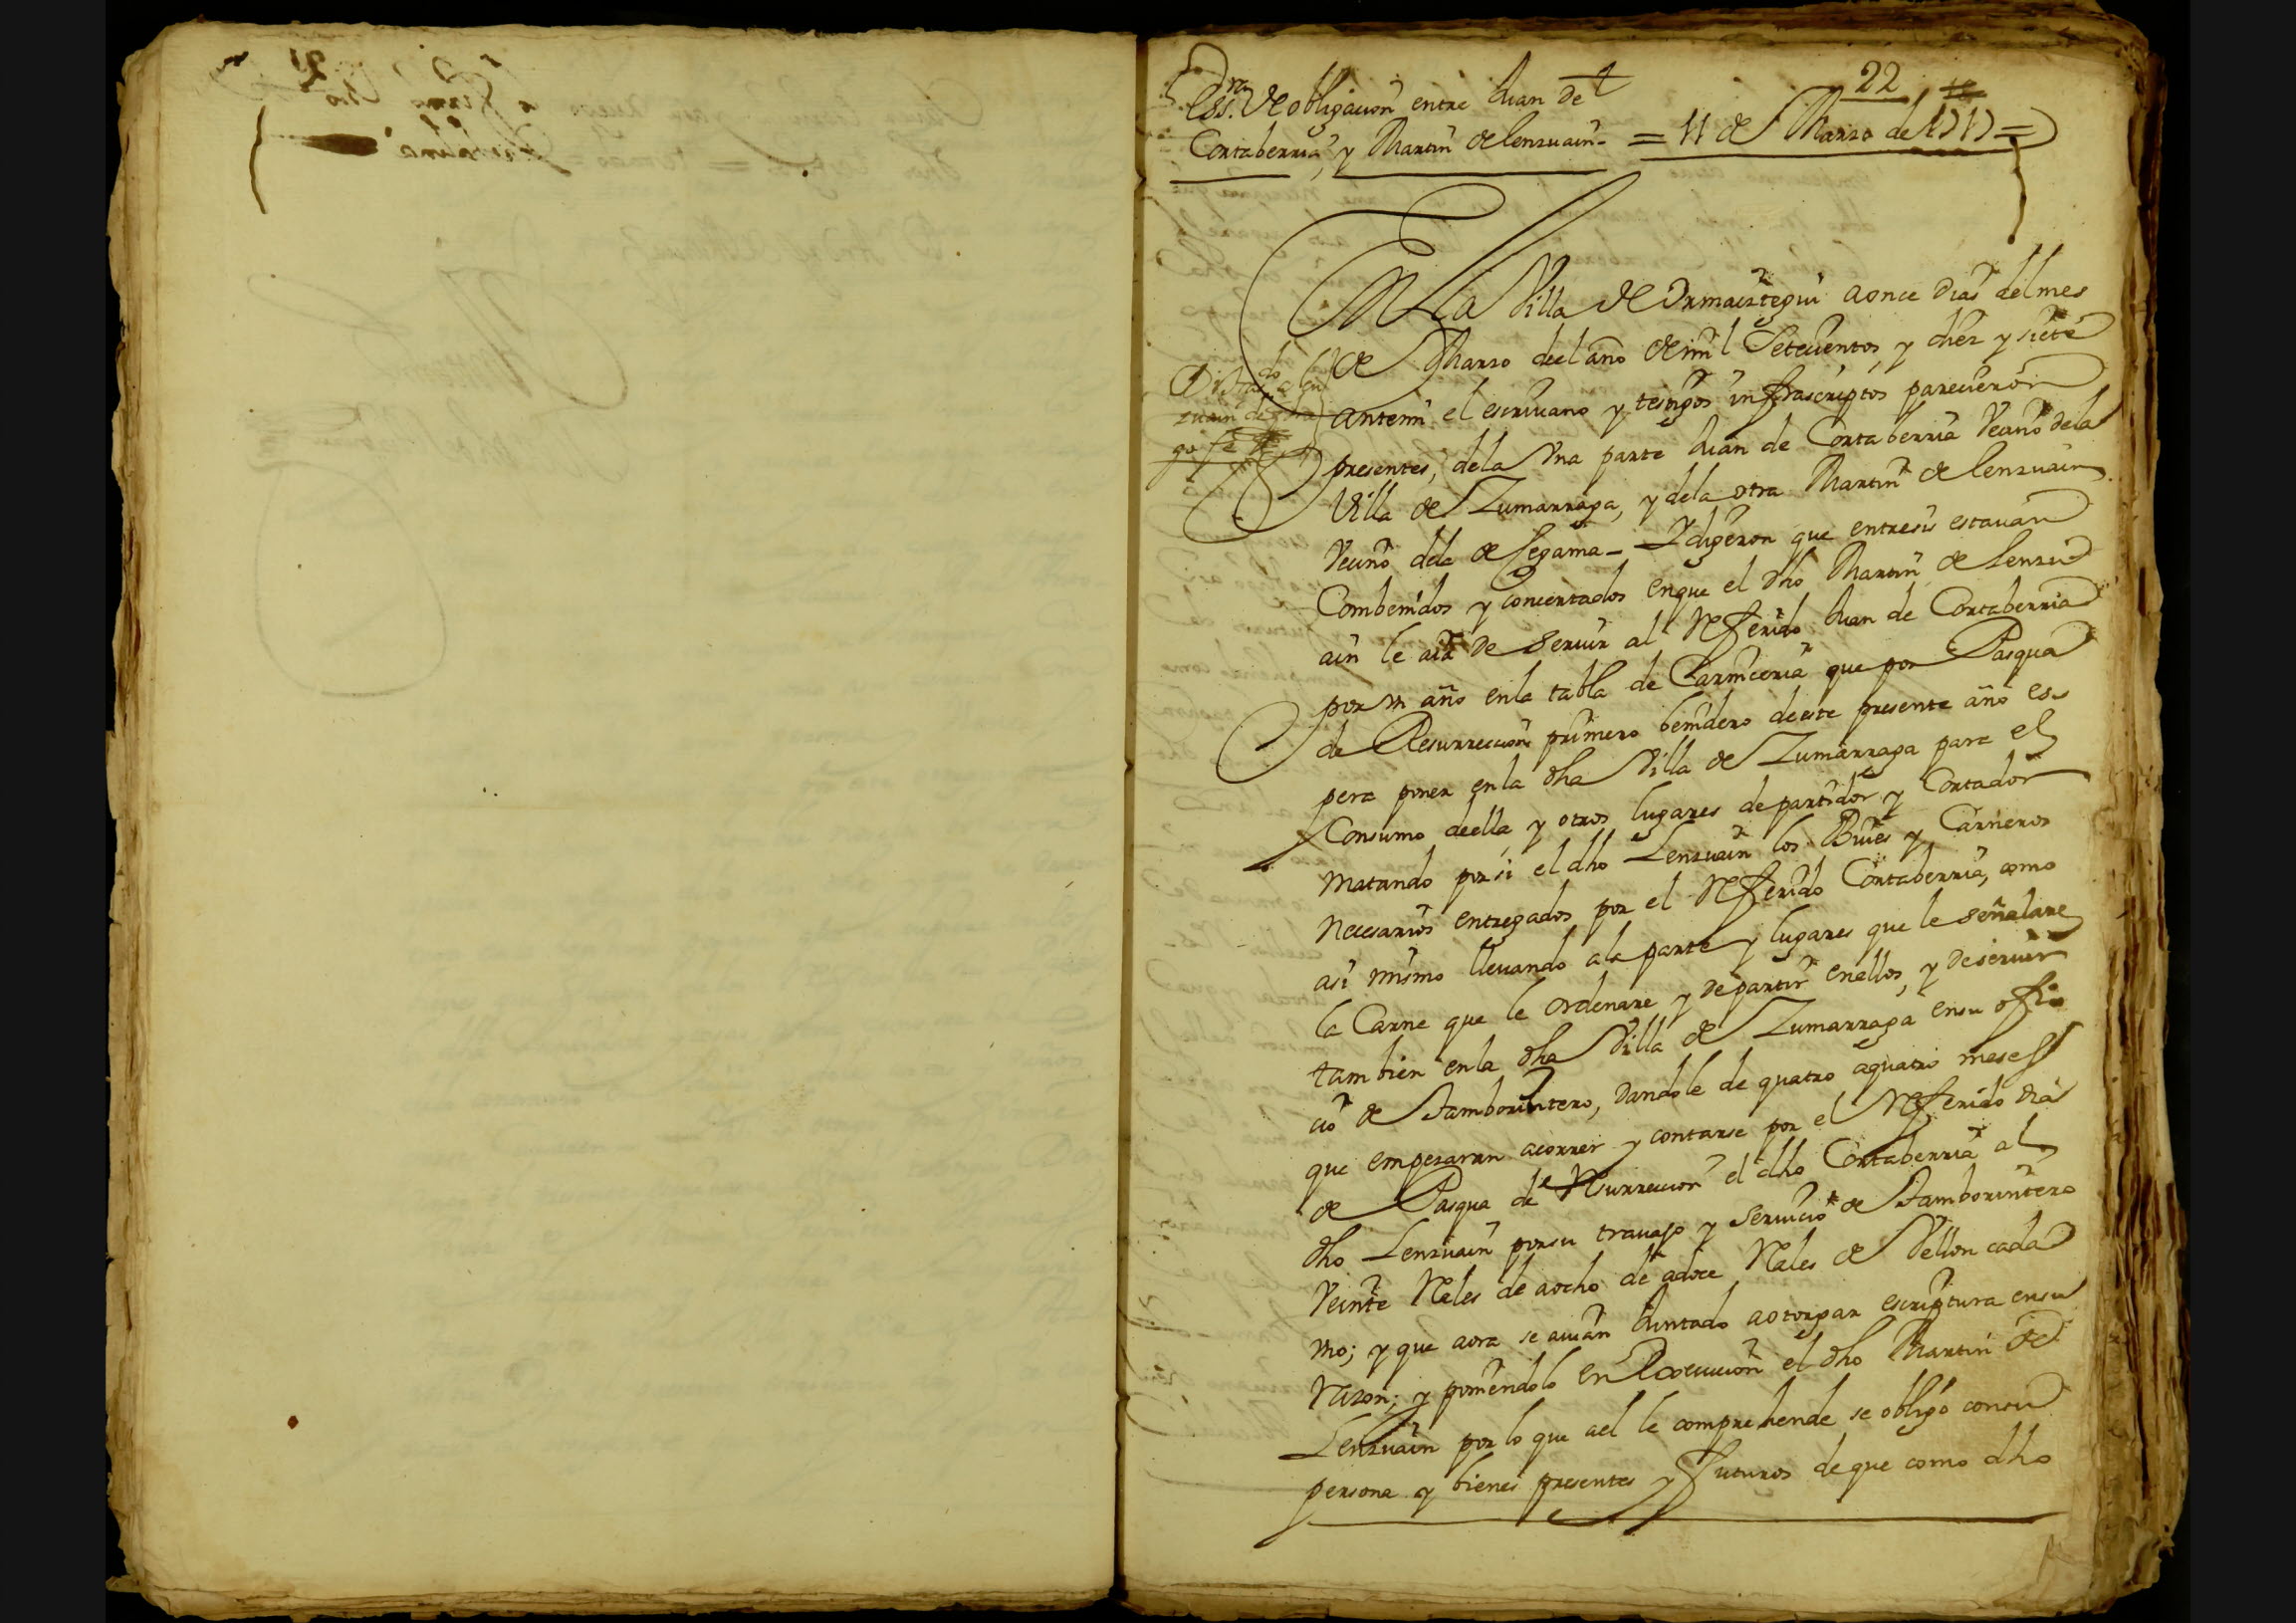 22
Essra. de obligacion entre Juan de
Cortaberria, y Martin de Lenzuain = 11 de Marzo de 1717 =
En La Villa de Ormaiztegui a once dias del mes
de Marzo deel año de mil Setecientos y diez y siete
antemi el escriuano y testigos infrascriptos parecieron
presentes, dela Vna parte Juan de Cortaberria Vecino dela
Villa de Zumarraga, y dela otra Martin de Lenzuain
Vecino dela de Segama - Y digeron que entresi estauan
Combenidos y concertados enque el dho Martin de Lenzu
ain le aia de Seruir al Referido Juan de Cortaberria
por vn año enla tabla de Carniceria que por Pasqua
de Resurreccion primero benidero deeste presente año es-
pera poner enla dha Villa de Zumarraga para el
Consumo deella, y otros lugares de partidor y Cortador
matando porsi el dho Lenzuain los Bueies y Carneros
necesarios entregados por el Referido Cortaberria, como
asi mismo lleuando ala parte y lugares que le señalare
la Carne que le ordenare y departir enellos, y de seruir
tambien enla dha Villa de Zumarraga ensu ofi
cio de Tamborintero, dandole de quatro aquatro meses
que empezaran acorrer y contarse por el Referido dia
de Pasqua de Resurreccion el dho Cortaberria al
dho Lenzuain porsu trauajo y Seruicio de Tamborintero
Veinte Rales de aocho de adoce Rales de Vellon cada
mo; y que aora se auian Juntado aotorgar escriptura ensu
Razon; y poniendolo en Execucion el dho Martin de
Lenzuain por lo que ael le comprehende se obligó consu
persona y bienes presentes y futuros de que como dho